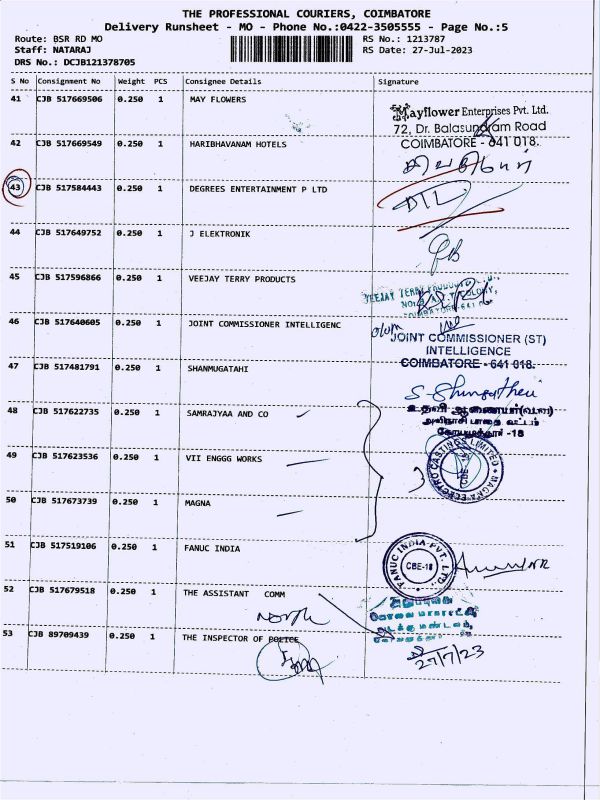 THE PROFESSIONAL COURIERS, COIMBATORE
Delivery Runsheet - MO - Phone No.:0422-3505555 - Page No.:5
Route: BSR RD MO
RS No.: 1213787
Staff: NATARAJ
RS Date: 27-Jul-2023
DRS No.: DCJB121378705
S No Consignment No Weight PCS Consignee Details Signature
41 CJB 517669506 0.250 1 MAY FLOWERS
Mayflower Enterprises Pvt. Ltd.
72, Dr. Balasundram Road
COIMBATORE - 641 018.
42 CJB 517669549 0.250 1 HARIBHAVANAM HOTELS
43 CJB 517584443 0.250 1 DEGREES ENTERTAINMENT P LTD
44 CJB 517649752 0.250 1 J ELEKTRONIK
45 CJB 517596866 0.250 1 VEEJAY TERRY PRODUCTS
VEEJAY TERRY
46 CJB 517640605 0.250 1 JOINT COMMISSIONER INTELLIGENC
JOINT COMMISSIONER (ST)
INTELLIGENCE
COIMBATORE - 641 018.
47 CJB 517481791 0.250 1 SHANMUGATAHI
48 CJB 517622735 0.250 1 SAMRAJYAA AND CO
உதவி ஆணையர்
அவிநாசி
-18
49 CJB 517623536 0.250 1 VII ENGGG WORKS
MAGNA ELECTRO CASTINGS LIMITED
50 CJB 517673739 0.250 1 MAGNA
51 CJB 517519106 0.250 1 FANUC INDIA
FANUC INDIA PVT. LTD.
CBE-18
52 CJB 517679518 0.250 1 THE ASSISTANT COMM
North
53 CJB 89709439 0.250 1 THE INSPECTOR OF POLICE
27/7/23